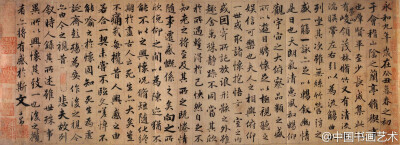 永和九年歲在癸丑暮春之初會
于會稽山陰之蘭亭脩稧事
也羣賢畢至少長咸集此地
有崇山峻領茂林脩竹又有清流激
湍暎帶左右引以為流觴曲水
列坐其次雖無絲竹管弦之
盛一觴一詠亦足以暢敘幽情
是日也天朗氣清惠風和暢仰
觀宇宙之大俯察品類之盛
所以遊目騁懷足以極視聽之
娛信可樂也夫人之相與俯仰
一世或取諸懷抱悟言一室之內
或因寄所託放浪形骸之外雖
趣舍萬殊靜躁不同當其欣
於所遇蹔得於己快然自足不
知老之將至及其所之既惓情
隨事遷感慨係之矣向之所
欣俛仰之閒以為陳迹猶不
能不以之興懷況脩短隨化終
期於盡古人云死生亦大矣豈
不痛哉每攬昔人興感之由
若合一契未嘗不臨文嗟悼不
能喻之於懷固知一死生為虛
誕齊彭殤為妄作後之視今
亦由今之視昔悲夫故列
敘時人錄其所述雖世殊事
異所以興懷其致一也後之攬
者亦將有感於斯文
@中国书画艺术